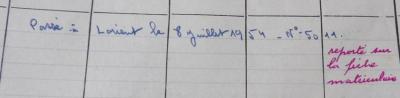 Passé à Lorient le 8 juillet 1954 - N° 5011.
reporté sur
la fiche
matriculaire